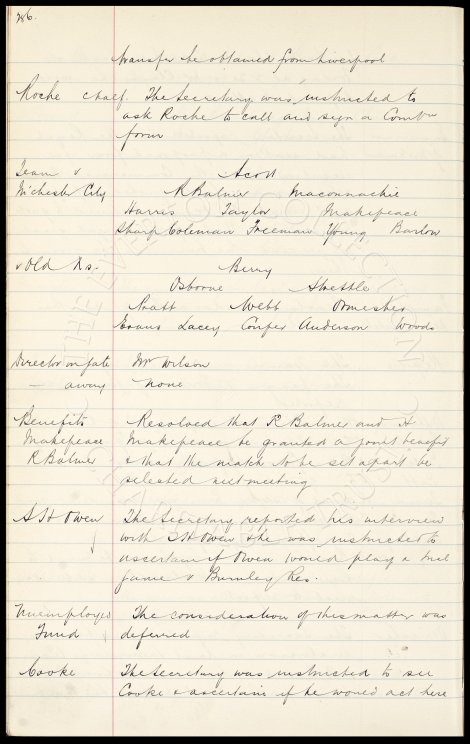 286.
transfer be obtained from Liverpool
Roche chaef. The Secretary was instructed to
ask Roche to call and sign a Comb
form
Team v Scott
M'chester City R Balmer Maconnachie
Harris Taylor Makepeace
Sharp Coleman Freeman Young Barlow
v Old Xs. Berry
Osborne Strettle
Pratt Webb Ormesher
Evans Lacey Cooper Anderson Woods
Director on gate Mr Wilson
— away None
Benefits Resolved that R Balmer and H
Makepeace Makepeace be granted a joint benefit
R Balmer & that the match to be set apart be
selected next meeting
S H Owen The Secretary reported his interview
with S H Owen & he was instructed to
ascertain if Owen would play a trial
game v Burnley Res.
Unemployed The consideration of this matter was
Fund deferred
Cooke The Secretary was instructed to see
Cooke & ascertain if he would act here
THE EVERTON COLLECTION
CHARITABLE TRUST